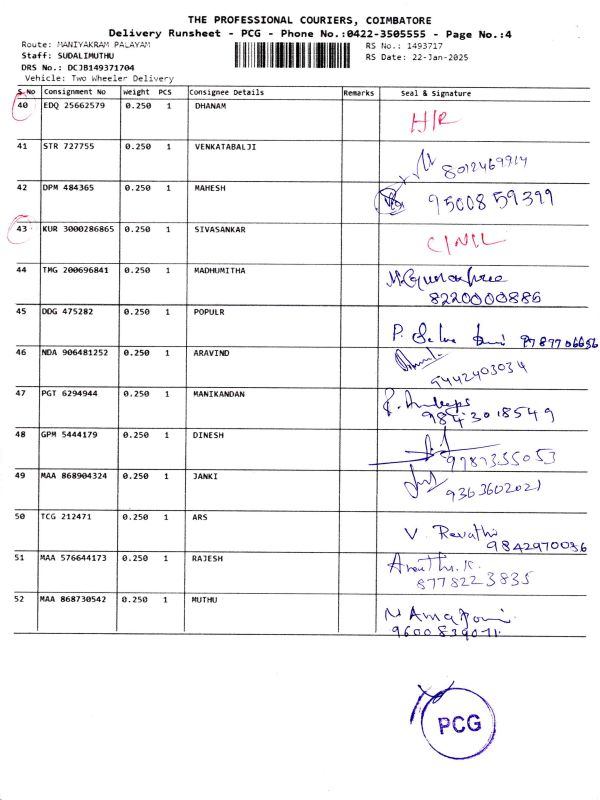 THE PROFESSIONAL COURIERS, COIMBATORE
Delivery Runsheet - PCG - Phone No.:0422-3505555 - Page No.:4
Route: MANIYAKRAM PALAYAM RS No.: 1493717
Staff: SUDALIMUTHU RS Date: 22-Jan-2025
DRS No.: DCJB149371704
Vehicle: Two Wheeler Delivery
S No Consignment No Weight PCS Consignee Details Remarks Seal & Signature
40 EDQ 25662579 0.250 1 DHANAM H/R
41 STR 727755 0.250 1 VENKATABALJI 8012469914
42 DPM 484365 0.250 1 MAHESH 9500859399
43 KUR 3000286865 0.250 1 SIVASANKAR
44 TMG 200696841 0.250 1 MADHUMITHA
8220000886
45 DDG 475282 0.250 1 POPULR P. 9789706656
46 NDA 906481252 0.250 1 ARAVIND
9442403034
47 PGT 6294944 0.250 1 MANIKANDAN
9843018549
48 GPM 5444179 0.250 1 DINESH 9787355053
49 MAA 868904324 0.250 1 JANKI 9363602021
50 TCG 212471 0.250 1 ARS V. Revathi
9842970036
51 MAA 576644173 0.250 1 RAJESH
8778223835
52 MAA 868730542 0.250 1 MUTHU
9600839071
PCG